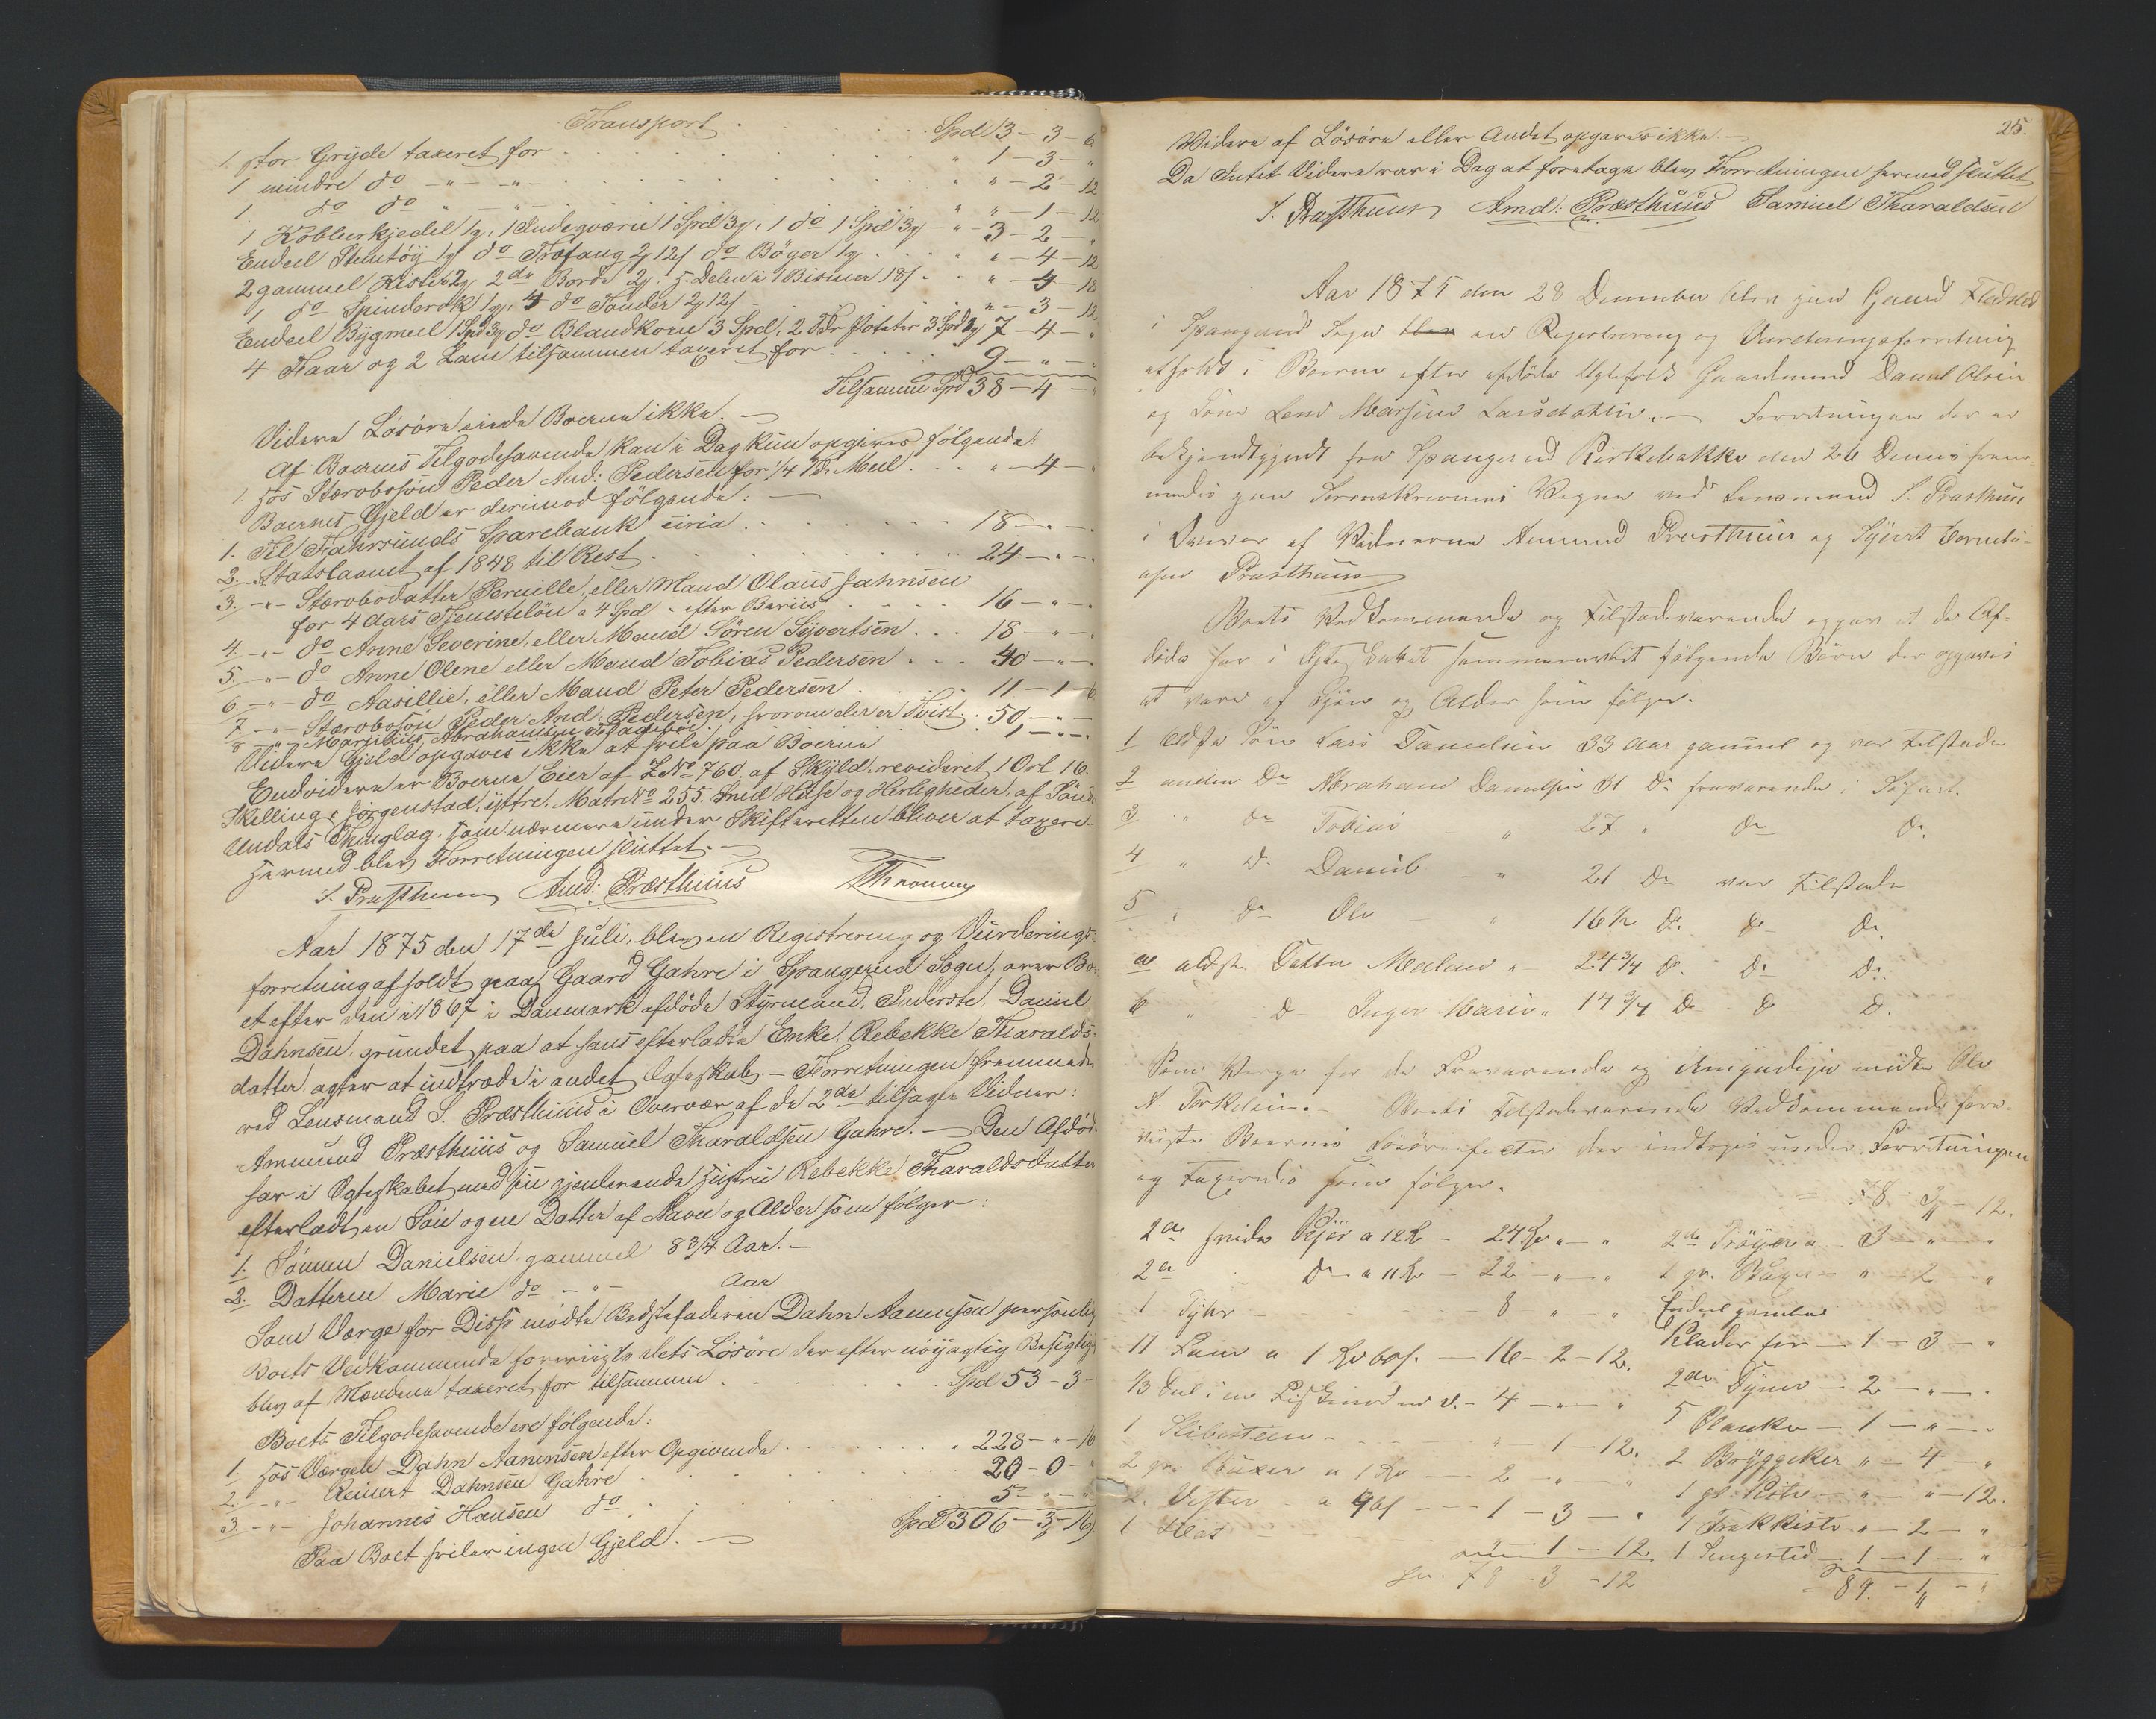 Transport . . . . Spd 13 - 3 - 6
1. stor Gryde taxeret for . . . . " 1 - 3 - "
1 mindre do - " - " - . . . . " " - 2 - 12
1. do do " - " . . . . " " - 1 - 12
1 Kobberkjedel 1 , 1 1 Spd 3 , 1 do 1 Spd 3 - " - 3 - 2 - "
Endeel Steentöÿ 1 do Træfang 2 12 do Böger 1 . . " - 4 - 12
2 gammel Kister 2 , 2de Borde 2 , 1 Bismer 18 . . " - 4 - 18
1 do Spinderok 1 , 4 do Tönder 2 12 . . " - 3 - 12
Endeel Bÿgmeel 1 Spd 3 do Blandkorn 3 Spd, 2 Tdr Poteter 3 Spd 7 - 4 - "
4 Faar og 2 Lam tilsammen taxeret for . . . . 9 - " - "
Tilsammen Spd 38 - 4 - "
Videre Lösöre eiede Boerne ikke. -
Af Boernes Tilgodehavende kan i Dag kun opgives følgende:
1. hos Stærobosön Peder And: Pedersen for 1/4 Td. Meel . . . " - 4 -
Boernes Gjeld er derimod følgende: -
1. Til Fahrsunds Sparebank circa . . . . 18 - " -
2. Statslaanet af 1848 til Rest . . . . 24 - " -
3. - " - Stærobodatter Pernille, eller Mand Olaus Jahnsen
for 4 Aars Tjenestelön a 4 Spd - efter Beviis . . 16 - " -
4. - " - do Anne Severine, eller Mand Sören Sÿvertsen . . . 18 - " -
5. - " - do Anne Olene eller Mand Tobias Pedersen . . . 40 - " -
6. - " - do Aasillie, eller Mand Peter Pedersen . . . 11 - 1 - 6
7. - " - Stærobosön Peder And. Pedersen, hvorom der er Tvist . 50, - " -
8 " Abrahamsen . . 1, - " -
Videre Gjeld opgaves ikke at hvile paa Boerne
Endvidere er Boerne Eier af L No 760. af Skÿld. revideret 1 Ort 16.
Skilling: Jörgenstad, ÿttre, Matr No 255. med Huse og Herligheder, af Sönd
Undals Thinglag, som nærmere under Skifteretten bliver at taxere.
Hermed blev Forretningen sluttet. -
S. Præsthuus And: Præsthuus
Aar 1875 den 17de Juli, blev en Registrering og Vurderings-
forretning afholdt paa Gaard Gahre i Spangereid Sogn, over Bo-
et efter den i 1867 i Danmark afdöde Stÿrmand, Inderste, Daniel
Dahnsen, grundet paa at hans efterladte Enke, Rebekke Tharalds-
datter agter at indtræde i andet Ægteskab. - Forretningen fremmedes
ved Lensmand S. Præsthuus i Overvær af de 2de tilsagte Vidner:
Ammund Præsthuus og Samuel Tharaldsen Gahre. - Den Afdöde
har i Ægteskabet med sin gjenlevende Hustru Rebekke Tharaldsdatter
efterladt en Sön og en Datter af Navn og Alder som følger:
1. Sönnen Danielsen, gammel 8 3/4 Aar. -
2. Datteren Marie do - " - Aar
Som Værge for Disse mödte Bedstefaderen Dahn Aanensen personlig
Boets Vedkommende foreviiste dets Lösöre der efter nöÿagtig Besigtigelse
blev af Mændene taxeret for tilsammen . . . . Spd 53 - 3 -
Boets Tilgodehavende ere følgende:
1. hos Værgen Dahn Aanensen efter Opgivende . . . . 228 - " - 16
2. - " - Reinert Dahnsen Gahre . . . . 20 - 0 - "
3. - " - Johannes Hansen do . . . . 5 - " - "
Spd 306 - 3 - 16
Paa Boet hviler ingen Gjeld. -
25.
Videre af Lösöre eller Andet opgaves ikke. -
Da Intet Videre var i Dag at foretage blev Forretningen hermed sluttet
S. Præsthuus Amd: Præsthuus Samuel Tharaldsen
Aar 1875 den 28 December blev paa Gaard
i Spangereid Sogn en Registrering og Vurderingsforretning
afholdt i Boerne efter afdöde Ægtefolk Gaardmand Daniel Olsen
og Kone Lene Larsdatter. - Forretningen der er
bekjendtgjordt fra Spangereid Kirkebakke den 26 Demis frem-
medes paa Sorenskriverens Vegne ved Lensmand S. Præsthuus
i Overvær af Vidnerne Ammund Præsthuus og Sÿvert Corneli-
usen Præsthuus
Boets Vedkommende og Tilstedeværende opgav at de Af-
döde har i Ægteskabet sammenavlet følgende Börn der opgaves
at være af Kjön og Alder som følger.
1 ældste Sön Lars Danielsen 33 Aar gammel og var tilstede
2 anden Do Abraham Danielsen 31 Do fraværende i Söfart.
3 " do Tobias - " 27 " do do.
4 " D. Daniel - " 21 Do var tilstede
5 " Do Ole " 16 1/2 D. Do Do.
a ældst. Datter Malene " - 24 3/4 D. Do Do.
b " D - Inger Marie " 14 3/4 D D D.
Som Værge for de Fraværende og Umÿndige mödte Ole
N. Torkelsen. - Boets tilstedeværende Vedkommende fore-
viiste Boernes Lösöreeffecter der indtoges under Forretningen
og taxeredes som følger.
78 - 3 - 12.
2de hvide Kjör a 12 - 24 " - " 2de Tröÿer a - 3 - " - "
2de Do a 11 - 22 - " - " 2 pr. Buxer - " - 2 - "
1 Tÿhr - 8 " " Endeel gamle
11 Faar a 1 60 . - 16 - 2 - 12. Klæder for - 1 - 3 - "
1/3 Deel i en - 4 - " - " 2de Dÿner - 2 - " - "
1 Slibesteen - - " - 1 - 12. 5 - 1 - " - "
2 pr. Buxer a 1 - 2 - " - " 2 Brÿggekar " - 4 - "
2. Vester a - - 1 - 3 - " 1 gl. Kiste - " - " - 12.
1 - 1 - 12. 1 " - 2 - "
1 Sengested - 1 - 1 - "
78 - 3 - 12
89. - 1 - "